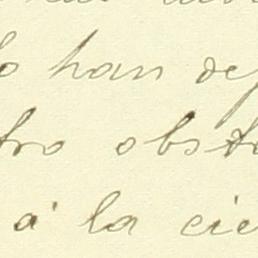 o han de
tro obst
à la cie